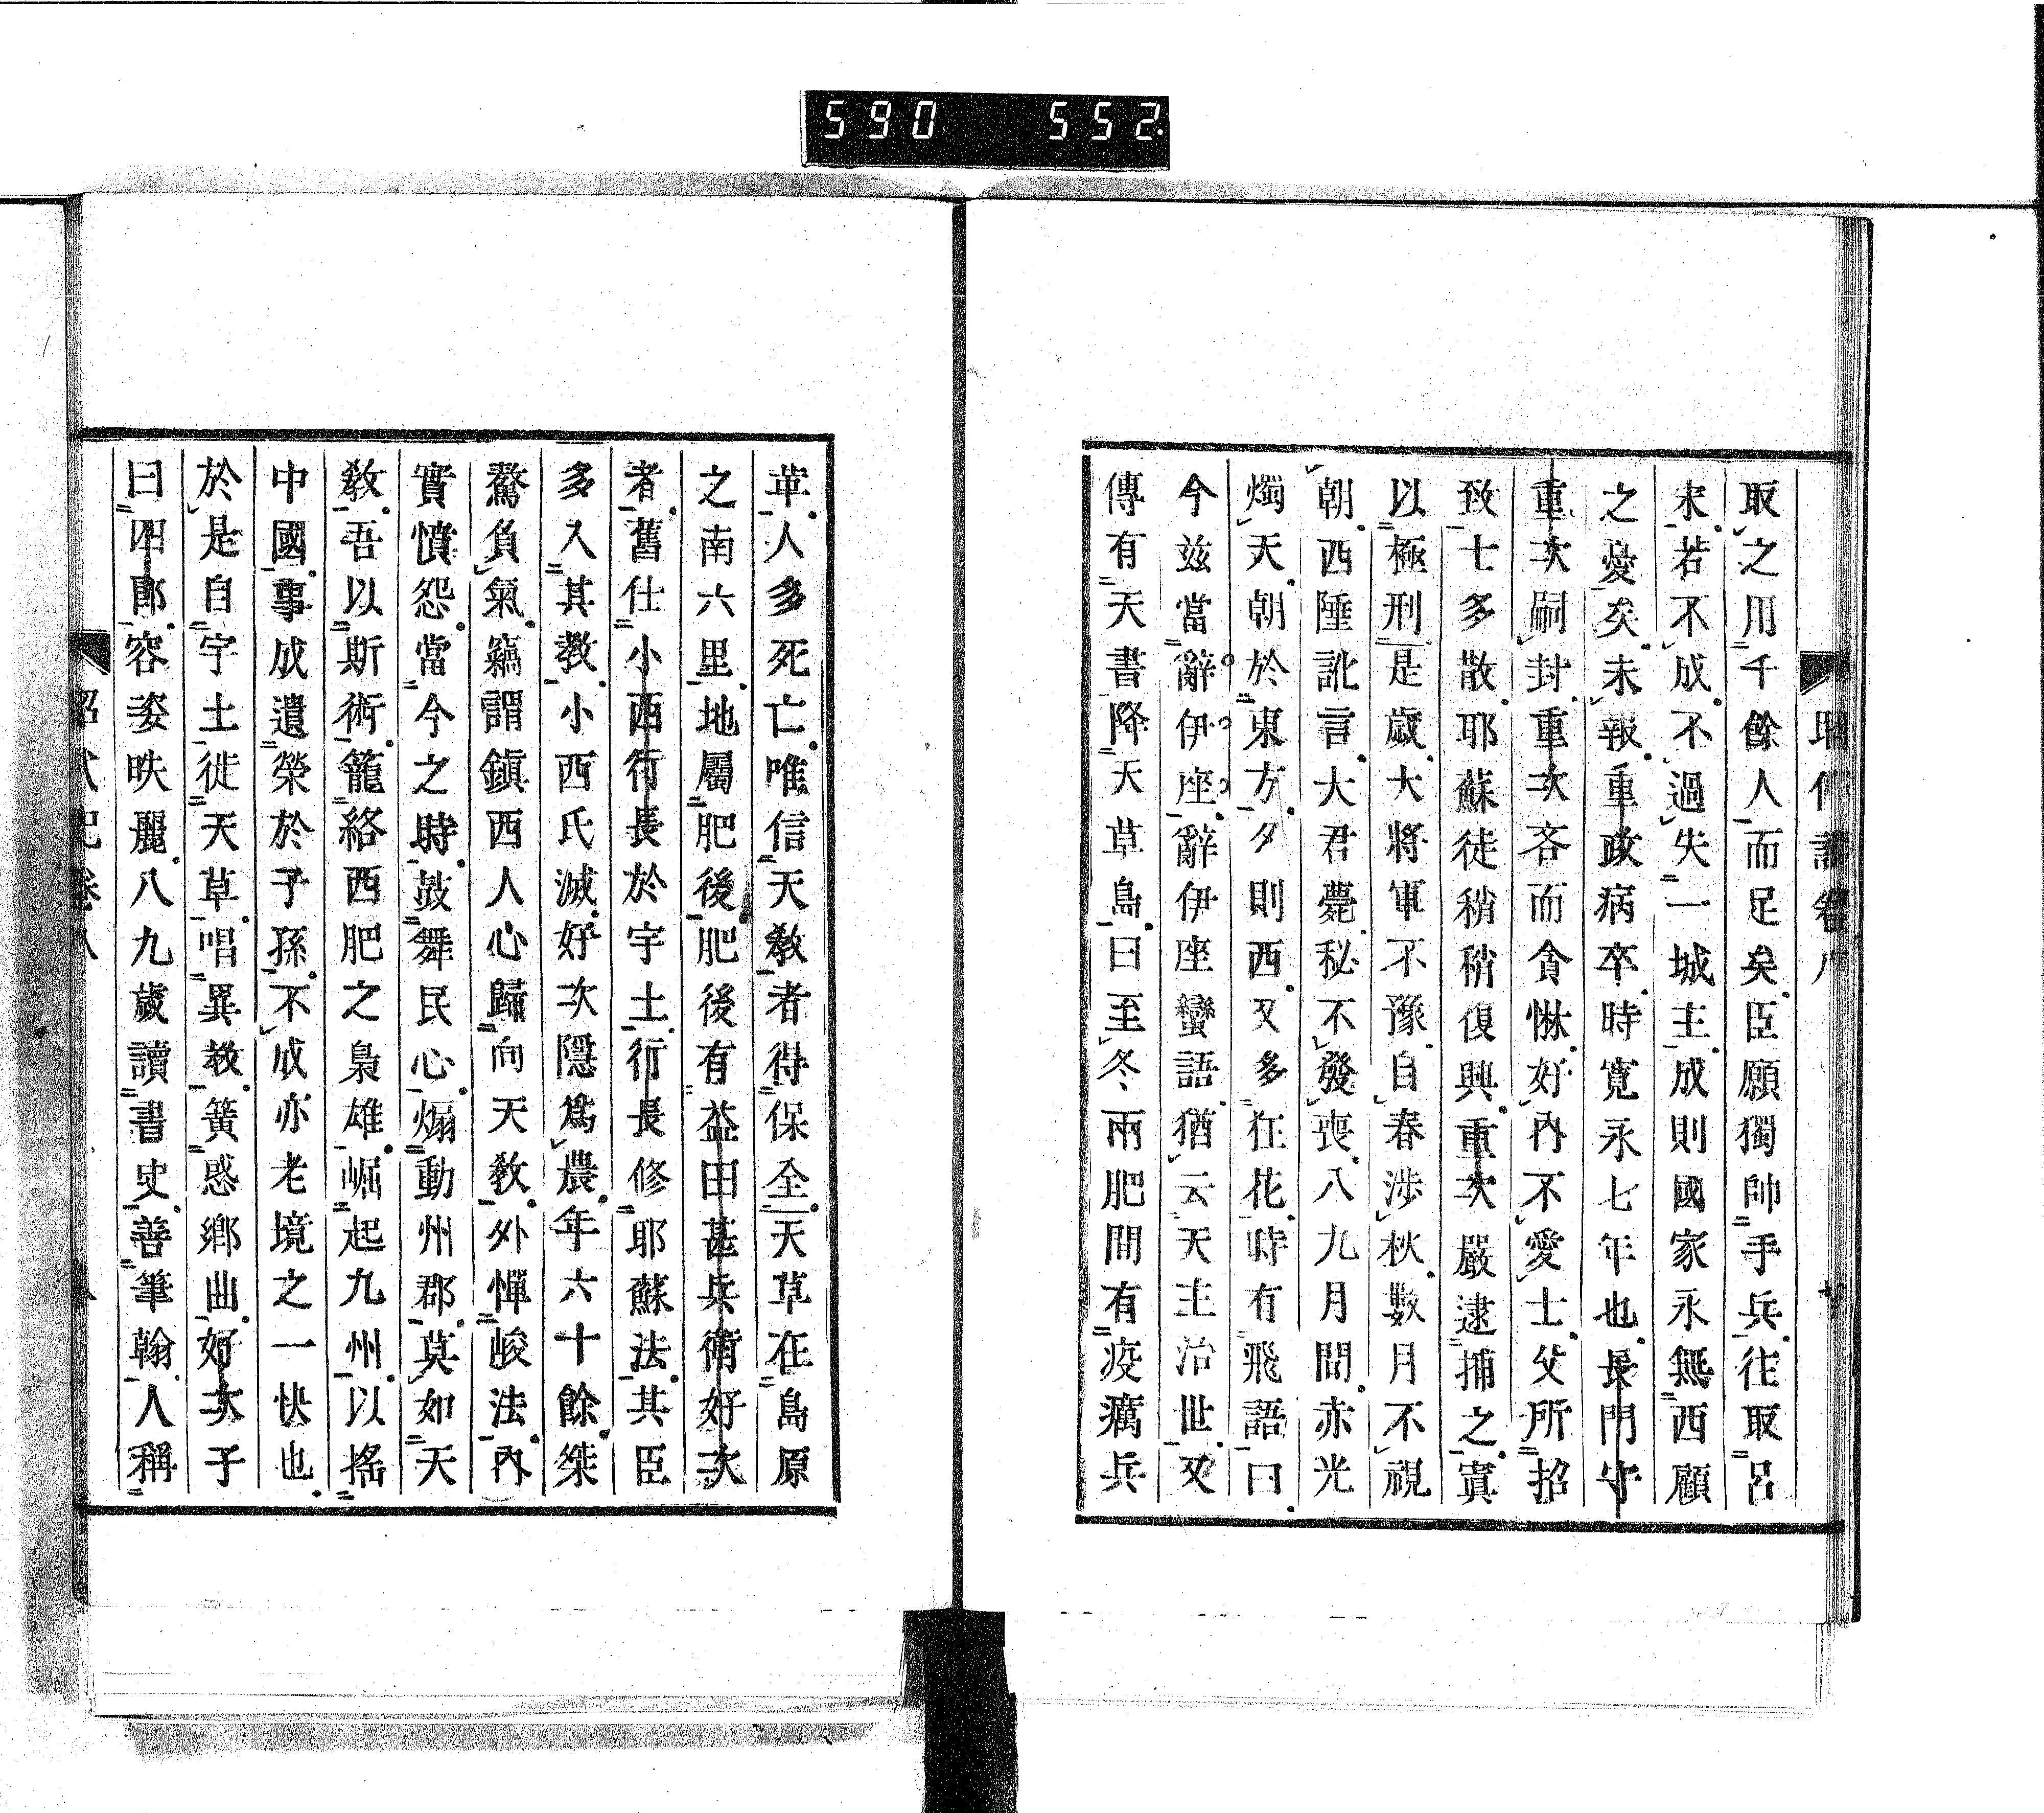 590 552
取之用千餘人而足矣臣願獨帥手兵往取呂
宋若不成不過失一城主成則國家永無西顧
之憂矣未報重政病卒時寛永七年也長門守
重次嗣封重次吝而貪惏好內不愛士父所招
致士多散耶蘇徒稍稍復興重次嚴逮捕之寘
以極刑是歲大將軍不豫自春涉秋數月不視
朝西陲訛言大君薨秘不發喪八九月間赤光
燭天朝於東方夕則西又多狂花時有飛語曰
今玆當辭伊座辭伊座蠻語猶云天主治世又
傳有天書降天草島曰至冬兩肥間有疫癘兵
革人多死亡唯信天敎者得保全天草在島原
之南六里地屬肥後肥後有益田甚兵衛好次
者舊仕小西行長於宇土行長修耶蘇法其臣
多入其教小西氏滅好次隱爲農年六十餘桀
驁負氣竊謂鎭西人心歸向天敎外憚峻法內
實憤怨當今之時鼓舞民心煽動州郡莫如天
敎吾以斯術籠絡西肥之梟雄崛起九州以搖
中國事成遺榮於子孫不成亦老境之一快也
於是自宇土徙天草唱異教簧惑鄕曲好次子
曰四郎容姿映麗八九歲讀書史善筆翰人稱